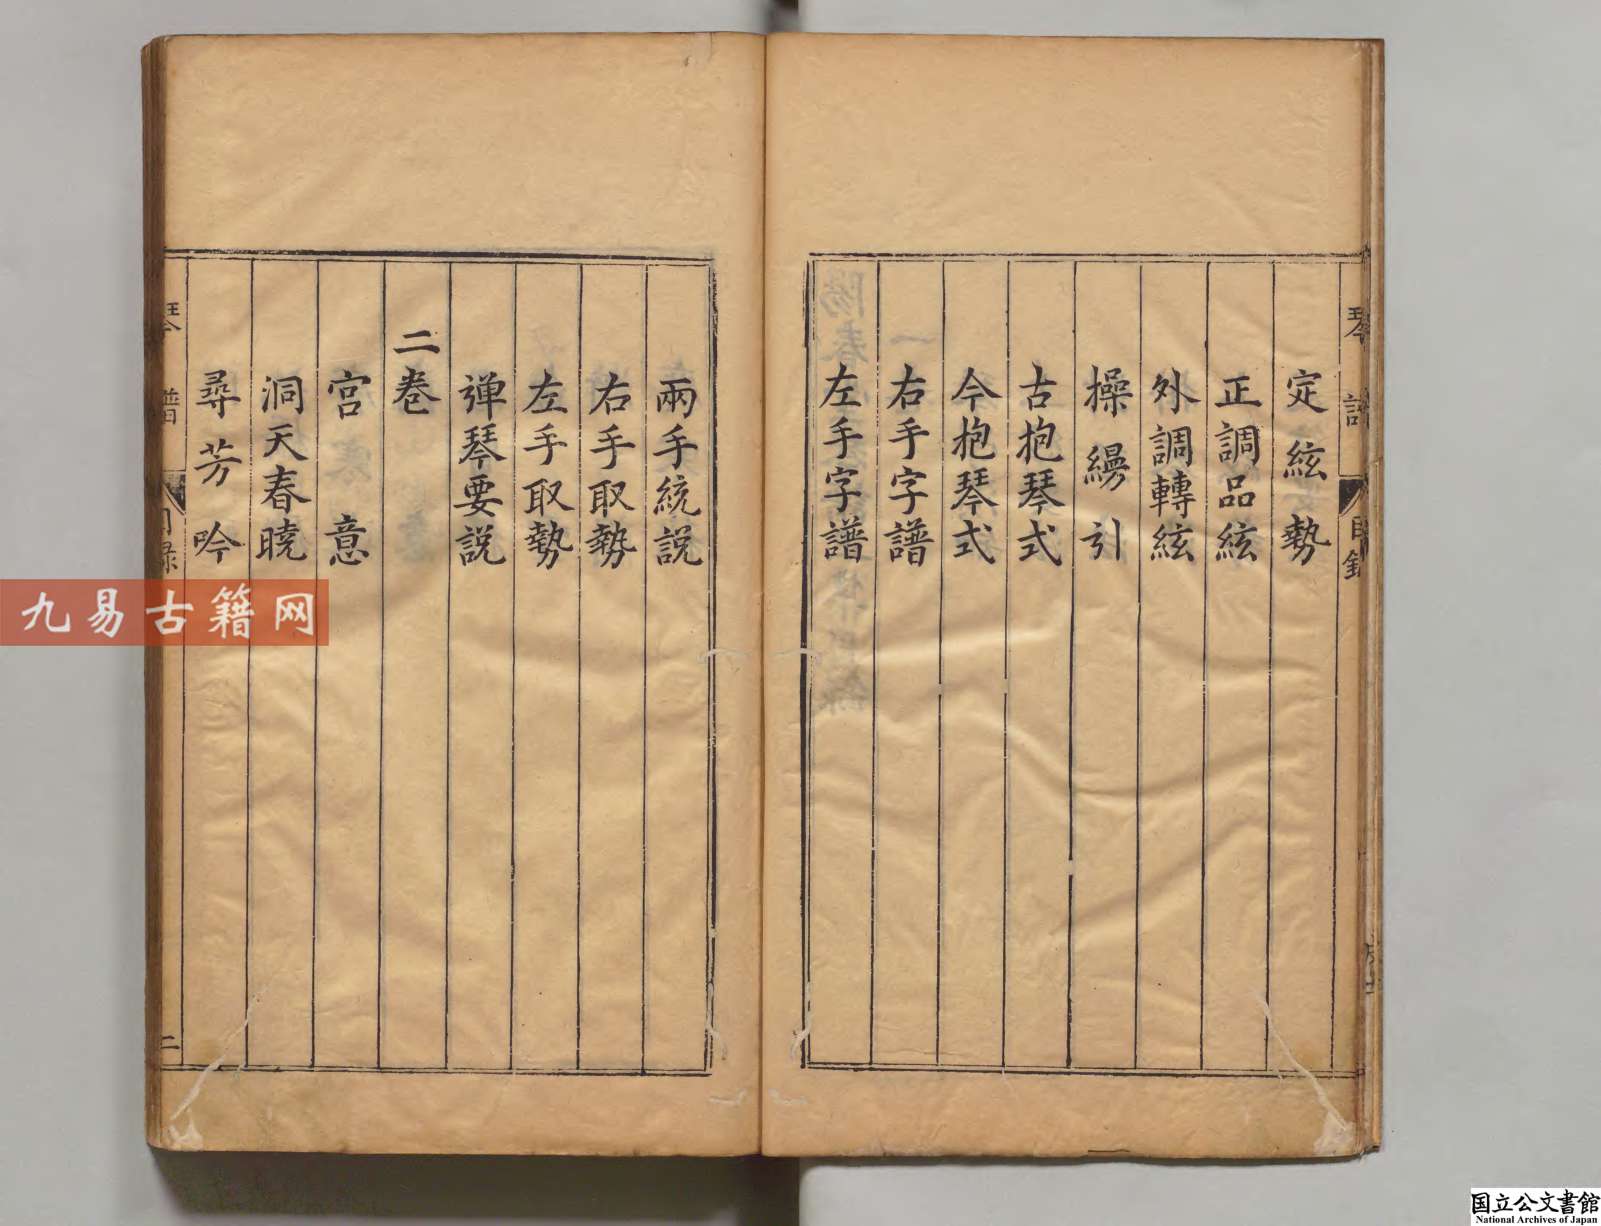 琴 譜 目錄
定絃勢
正調品絃
外調轉絃
操縵引
古抱琴式
今抱琴式
右手字譜
左手字譜
兩手統説
右手取勢
左手取勢
彈琴要説
二卷
宫意
洞天春曉
尋芳吟
琴 譜 目録 二
九易古籍网
国立公文書館
National Archives of Japan